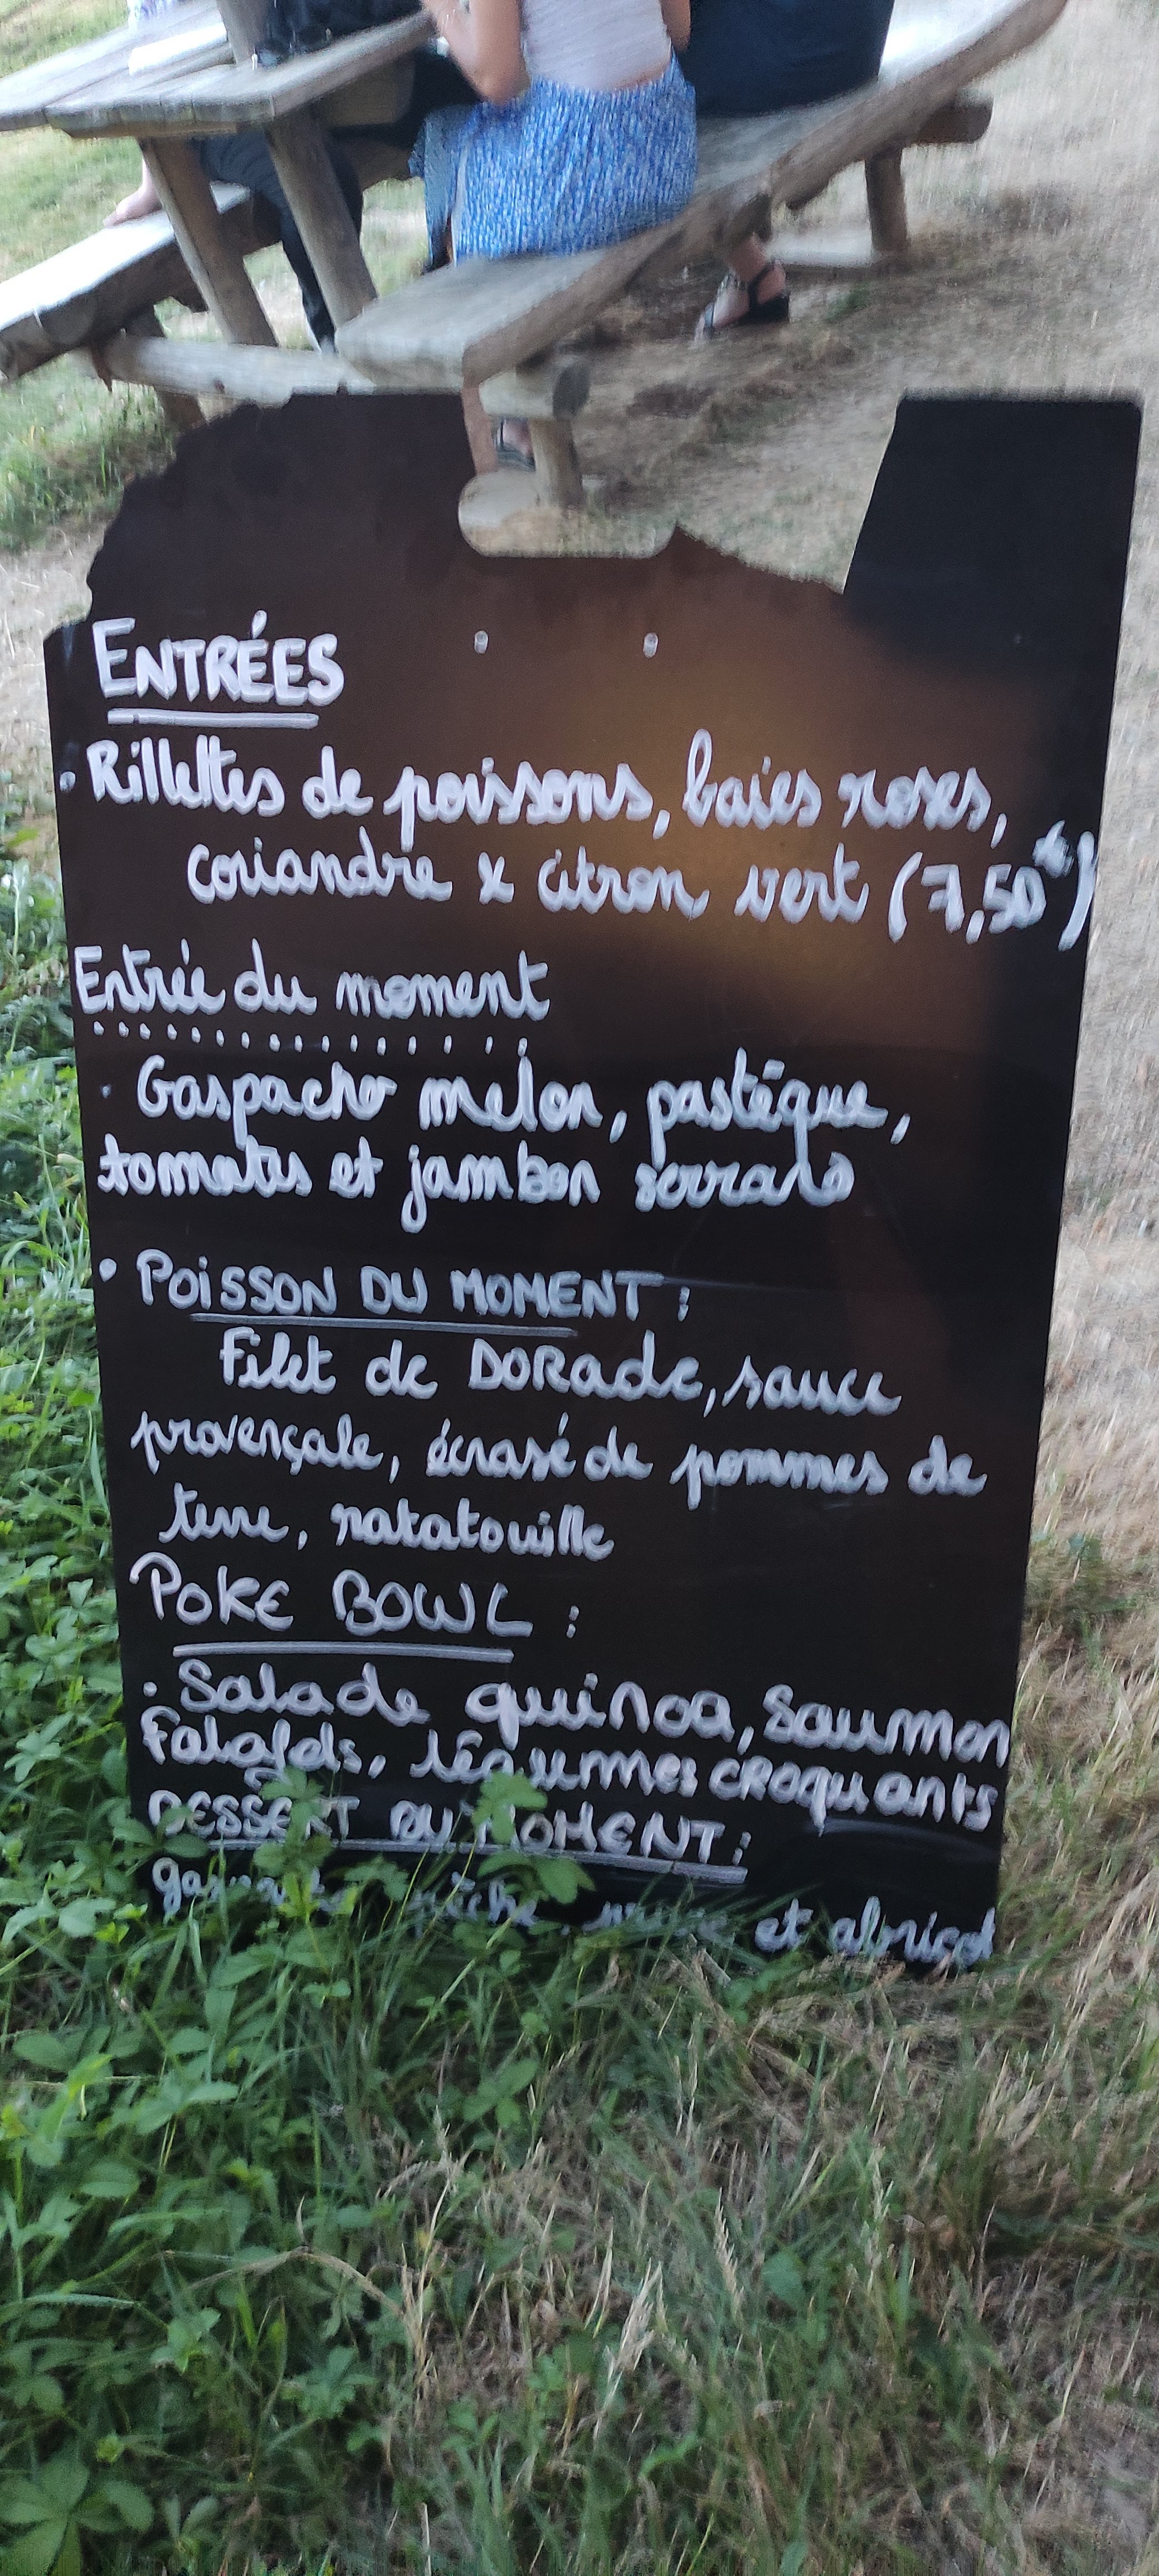 ENTRÉES
. Rillettes de poissons, baies roses,
coriandre x citron vert (7,50€)
Entrée du moment
. Gaspacho melon, pastèque,
tomates et jambon serrano
• POISSON DU MOMENT :
Filet de DORade, sauce
provençale, écrasé de pommes de
terre, ratatouille
POKE BOWL :
. Salade quinoa, Saumon
Falafels, légumes CROquants
DESSERT DU MOMENT :
et abricot